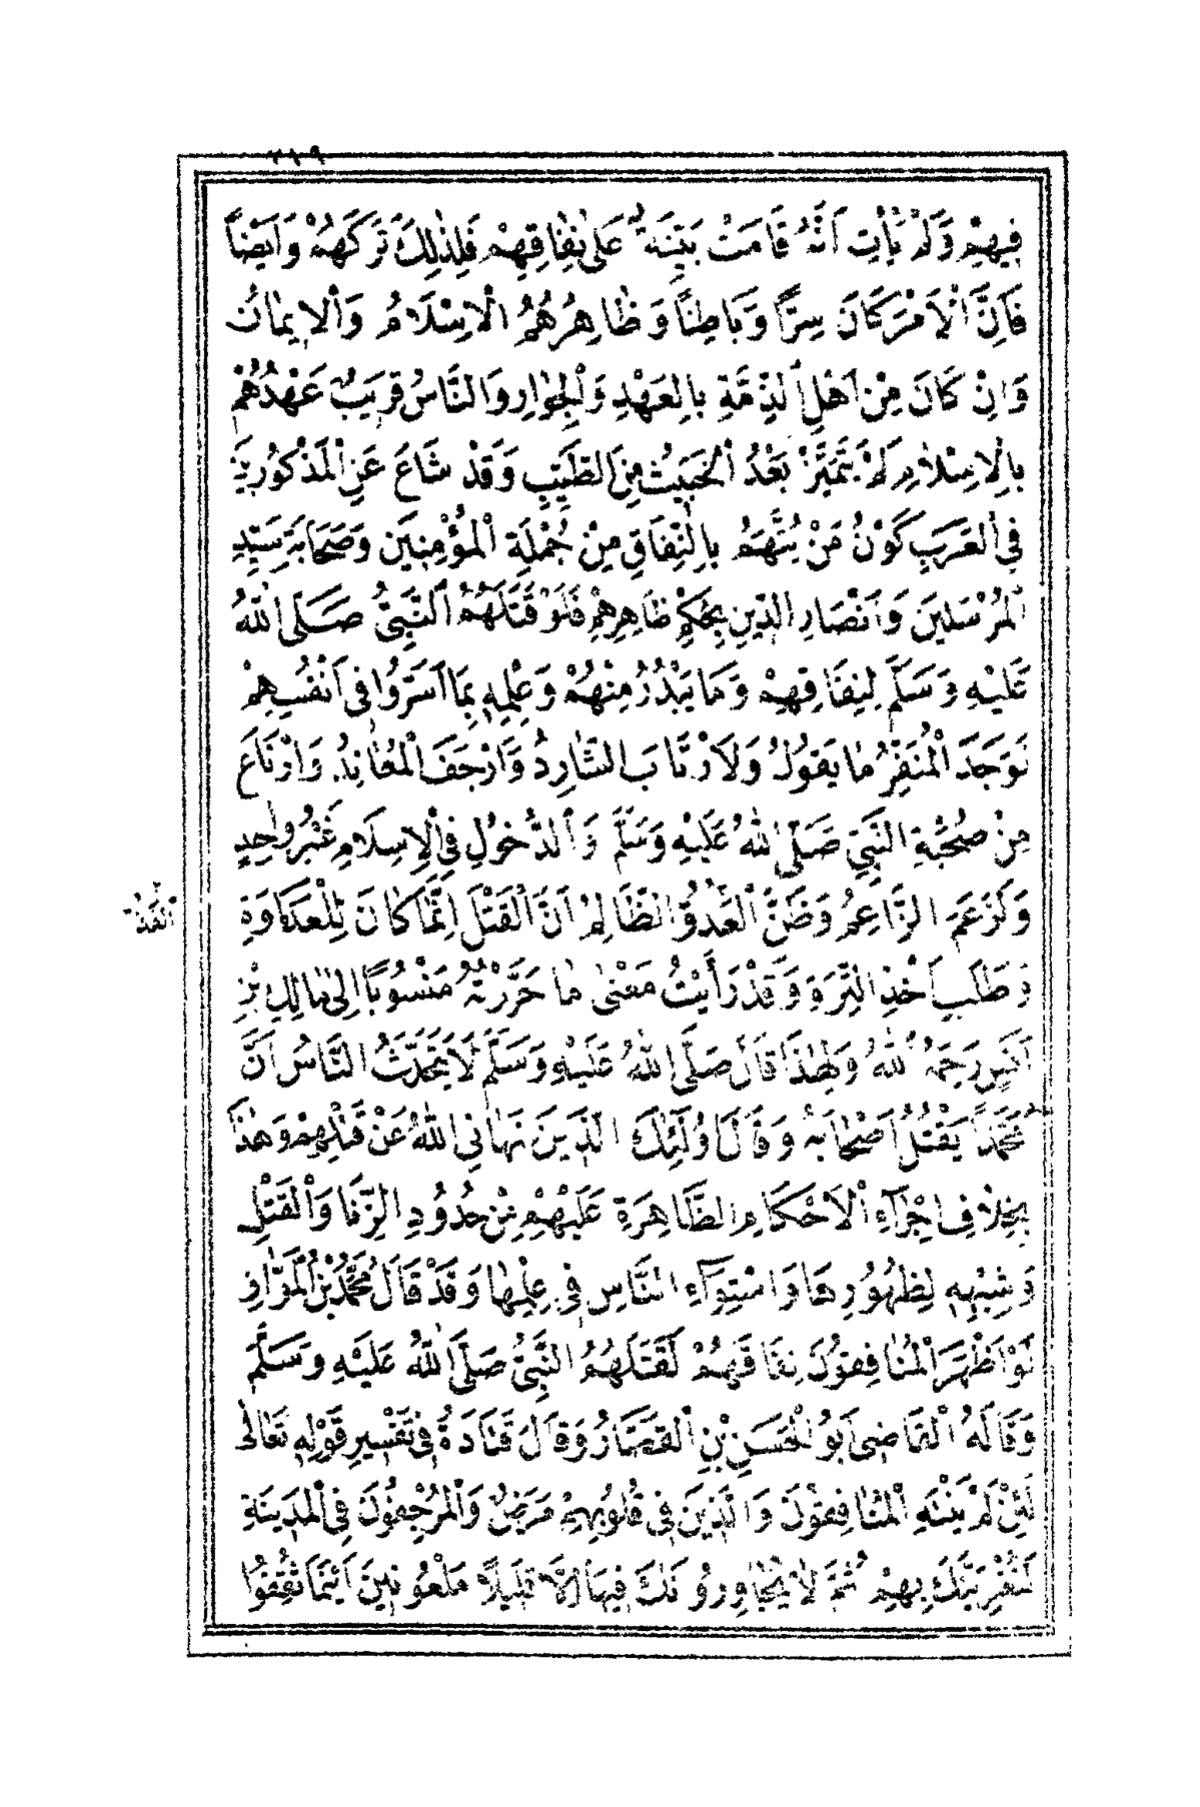 ٢١٩
فِيهِمْ وَلَمْ يَأْتِ اَنَّهُ قَامَتْ بَيِّنَةٌ عَلٰى نِفَاقِهِمْ فَلِذٰلِكَ تَرَكَهُمْ وَاَيْضاً
فَاِنَّ الْاَمْرَ كَانَ سِرًّا وَبَاطِنًا وَظَاهِرُهُمُ الْاِسْلَامُ وَالْاِيمَانُ
وَاِنْ كَانَ مِنْ اَهْلِ الذِّمَّةِ بِالْعَهْدِ وَالْجِوَارِ وَالنَّاسُ قَرِيبٌ عَهْدُهُمْ
بِالْاِسْلَامِ لَمْ يَتَمَيَّزْ بَعْدُ الْخَبِيثُ مِنَ الطَّيِّبِ وَقَدْ شَاعَ عَنِ الْمَذْكُورِينَ
فِى الْعَرَبِ كَوْنُ مَنْ يُتَّهَمُ بِالنِّفَاقِ مِنْ جُمْلَةِ الْمُؤْمِنِينَ وَصَحَابَةِ سَيِّدِ
الْمُرْسَلِينَ وَاَنْصَارِ الدِّينِ بِحُكْمِ ظَاهِرِهِمْ فَلَوْ قَتَلَهُمُ النَّبِىُّ صَلَّى اللّٰهُ
عَلَيْهِ وَسَلَّمَ لِنِفَاقِهِمْ وَمَا يَبْدُرُ مِنْهُمْ وَعِلْمِهِ بِمَا اَسَرُّوا فِى اَنْفُسِهِمْ
لَوَجَدَ الْمُنَفِّرُ مَا يَقُولُ وَلَارْتَابَ الشَّارِدُ وَاَرْجَفَ الْمُعَانِدُ وَارْتَاعَ
مِنْ صُحْبَةِ النَّبِىِّ صَلَّى اللّٰهُ عَلَيْهِ وَسَلَّمَ وَالدُّخُولِ فِى الْاِسْلَامِ غَيْرُ وَاحِدٍ
وَلَزَعَمَ الزَّاعِمُ وَظَنَّ الْعَدُوُّ الظَّالِمُ اَنَّ الْقَتْلَ اِنَّمَا كَانَ لِلْعَدَاوَةِ
وَطَلَبِ اَخْذِ التِّرَةِ وَقَدْ رَأَيْتُ مَعْنٰى مَا حَرَّرْتُهُ مَنْسُوبًا اِلٰى مَالِكِ بْنِ
اَنَسٍ رَحِمَهُ اللّٰهُ وَلِهٰذَا قَالَ صَلَّى اللّٰهُ عَلَيْهِ وَسَلَّمَ لَا يَتَحَدَّثُ النَّاسُ اَنَّ
مُحَمَّداً يَقْتُلُ اَصْحَابَهُ وَقَالَ اُولٰئِكَ الَّذِينَ نَهَانِى اللّٰهُ عَنْ قَتْلِهِمْ وَهٰذَا
بِخِلَافِ اِجْرَآءِ الْاَحْكَامِ الظَّاهِرَةِ عَلَيْهِمْ مِنْ حُدُودِ الزِّنَا وَالْقَتْلِ
وَشِبْهِهِ لِظُهُورِهَا وَاسْتِوَآءِ النَّاسِ فِى عِلْمِهَا وَقَدْ قَالَ مُحَمَّدُ بْنُ الْمَوَّازِ
لَوْ اَظْهَرَ الْمُنَافِقُونَ نِفَاقَهُمْ لَقَتَلَهُمُ النَّبِىُّ صَلَّى اللّٰهُ عَلَيْهِ وَسَلَّمَ
وَقَالَهُ الْقَاضِى اَبُو الْحَسَنِ بْنِ الْقَصَّارِ وَقَالَ قَتَادَةُ فِى تَفْسِيرِ قَوْلِهِ تَعَالٰى
لَئِنْ لَمْ يَنْتَهِ الْمُنَافِقُونَ وَالَّذِينَ فِى قُلُوبِهِمْ مَرَضٌ وَالْمُرْجِفُونَ فِى الْمَدِينَةِ
لَنُغْرِيَنَّكَ بِهِمْ ثُمَّ لَا يُجَاوِرُونَكَ فِيهَا اِلَّا قَلِيلاً مَلْعُونِينَ اَيْنَمَا ثُقِفُوا